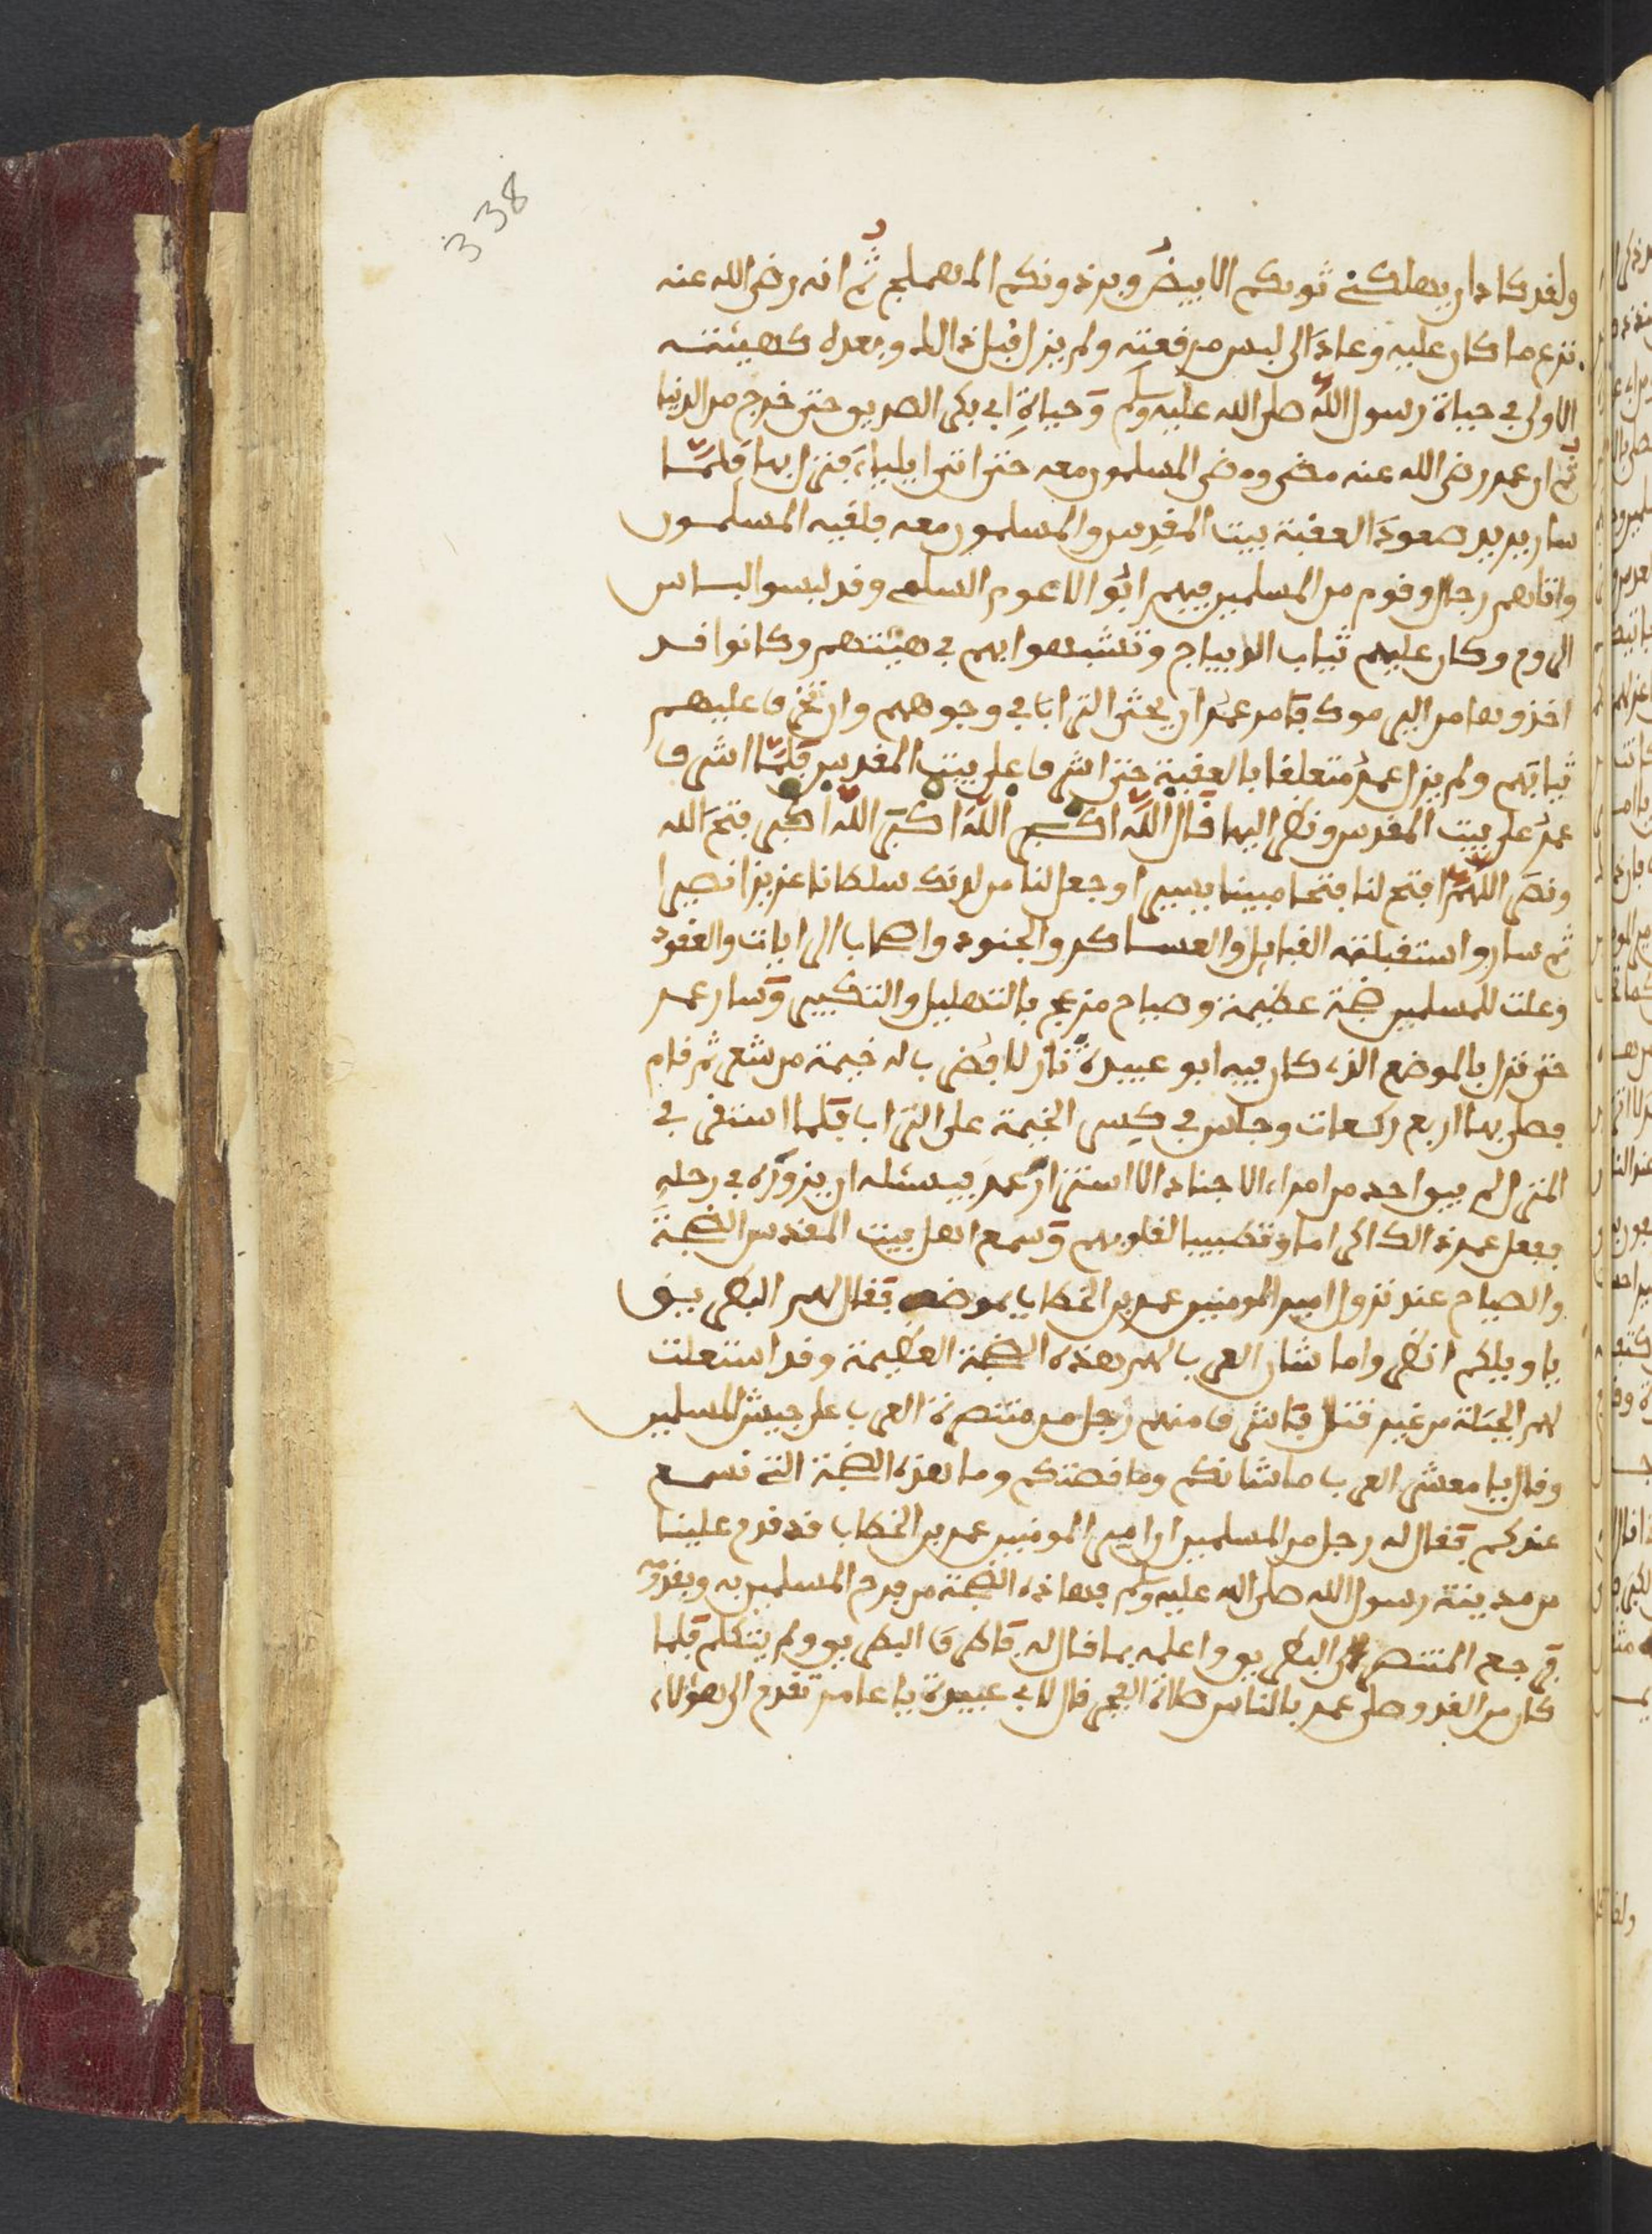 338
ولقد كاد ان يهلكني ثوبكم الابيض وبرذونكم المهملج ثم انه رضي الله عنه
نزع ما كان عليه وعاد الى لبس مرقعته ولم يزل قبل ذالك وبعده كهيئته
الاولى في حياة رسول الله صلى الله عليه وسلم وحياة ابي بكر الصديق حتى خرج من الدنيا
ثم ان عمر رضي الله عنه مضى ومضى المسلمون معه حتى اتى ايلياء فنزل بها فلما
سار يريد صعود العقبة بيت المقدس والمسلمون معه فلقيه المسلمون
واتاهم رجال وقوم من المسلمين فيهم ابو الاعور السلمي وقد لبسوا لباس
الروم وكان عليهم ثياب الديباج وتشبهوا بهم في هيئتهم وكانوا قد
اخذوها من اليرموك فامر عمر ان يحثى التراب في وجوههم وان تخرق عليهم
ثيابهم ولم يزل عمر متعلقا بالعقبة حتى اشرف على بيت المقدس فلما اشرف
عمر على بيت المقدس ونظر اليها قال الله اكبر الله اكبر الله اكبر فتح الله
ونصر اللهم افتح لنا فتحا مبينا يسيرا وجعل لنا من لدنك سلطانا عزيزا نصيرا
ثم سار واستقبلته القبايل والعساكر والجنود واصحاب الرايات والعقود
وعلت للمسلمين ضجة عظيمة وصياح مزعج بالتهليل والتكبير وسار عمر
حتى نزل بالموضع الذي كان فيه ابو عبيدة نازلا فضرب له خيمة من شعر ثم قام
فصلى بها اربع ركعات وجلس في كسر الخيمة على التراب فلما استقر في
المنزل لم يبق احد من امراء الاجناد الا استزار عمر يسئله ان يزوره في رحله
ففعل عمر ذالك اكراما وتطييبا لقلوبهم وسمع اهل بيت المقدس الضجة
والصياح عند نزول امير المومنين عمر بن الخطاب بموضعه فقال لهم البطريق
يا ويلكم انظروا ما شان العرب لهم بهذه الضجة العظيمة وقد استعلت
لهم الجلبة من غير قتال فاشرف منهم رجل من متنصرة العرب على جيش المسلمين
وقال يا معشر العرب ما شانكم وما قصتكم وما هذه الضجة التي نسمع
عندكم فقال له رجل من المسلمين ان امير المومنين عمر بن الخطاب قد قدم علينا
من مدينة رسول الله صلى الله عليه وسلم فهاذه الضجة من فرح المسلمين به وبقدومه
فرجع المتنصر الى البطريق واعلمه بما قال له فاطرق البطريق ولم يتكلم فلما
كان من الغد وصلى عمر بالناس صلاة الفجر قال لابي عبيدة يا عامر تقدم الى هؤلاء